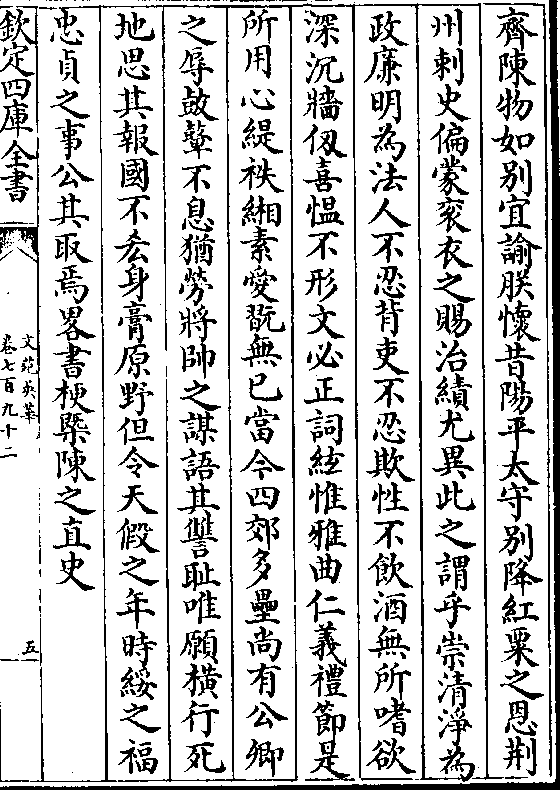 齊陳物如别宜諭朕懷昔陽平太守别降紅粟之恩荆
州刺史偏蒙衮衣之賜治績尤異此之謂乎崇清淨為
政廉明為法人不忍背吏不忍欺性不飲酒無所嗜欲
深沉牆仭喜愠不形文必正詞絃惟雅曲仁義禮節是
所用心緹袟緗素愛翫無已當今四郊多壘尚有公卿
之辱鼓鼙不息猶勞將帥之謀語其讐恥唯願横行死
地思其報國不㳟身膏原野但令天假之年時綏之福
忠貞之事公其取焉畧書梗槩陳之直史
欽定四庫全書
文苑英華
卷七百九十二
五